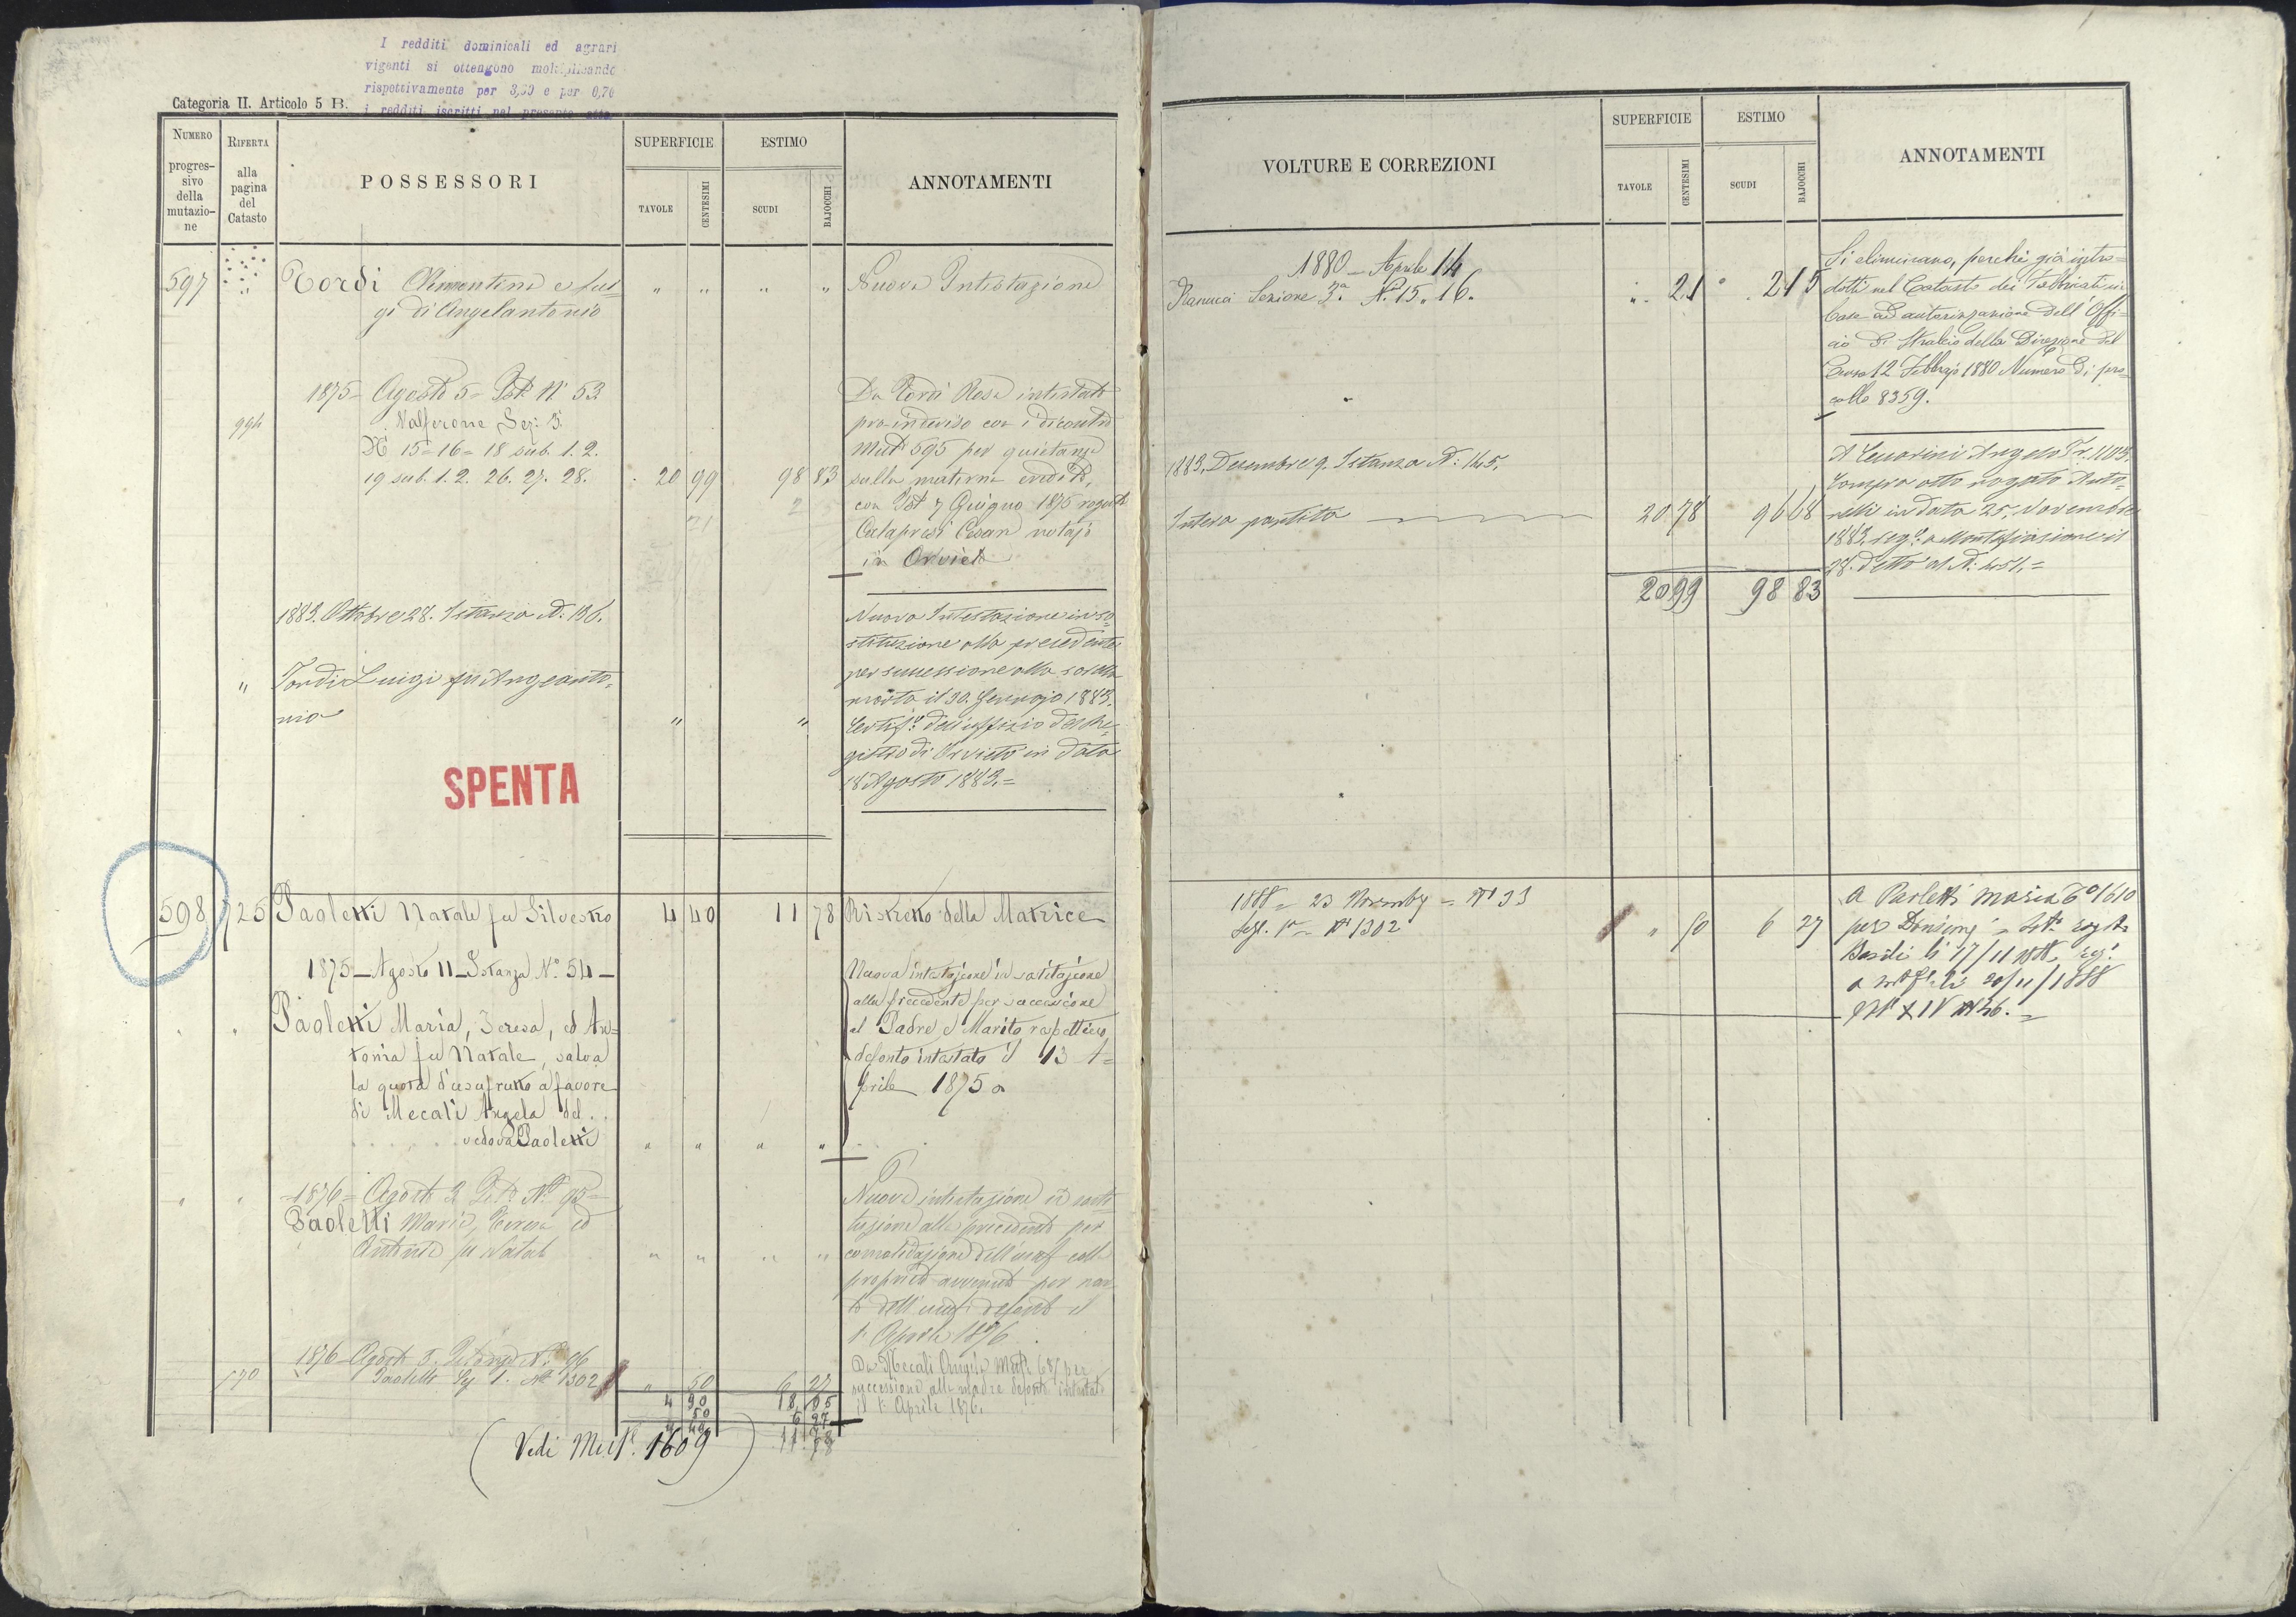 I redditi dominicali ed agrari
vigenti si ottengono moltiplicando
rispettivamente per 3,60 e per 0,70
i redditi iscritti nel presente atto.
Categoria II. Articolo 5 B.
NUMERO progres-sivo della mutazio-ne
RIFERTA alla pagina del Catasto
POSSESSORI
SUPERFICIE
TAVOLE
CENTESIMI
ESTIMO
SCUDI
BAJOCCHI
ANNOTAMENTI
597
Tordi Clementina e Lui-
gi di Angelantonio
" " " "
Nuova Intestazione
1875 - Agosto 5 - Ist. N. 53
994
Valferone Sez: 3ª
Ni 15 - 16 - 18 sub. 1. 2.
19 sub. 1. 2. 26. 27. 28.
20 99
98 83
21
2
Da Tordi Rosa intestata
pro-indiviso con i dicontro
Mut 595 per quietanza
sulla materna eredità,
con Ist 7 Giugno 1875 rogato
Cesare notajo
in Orvieto
1883. Ottobre 28. Istanza N: 136.
" Tordi Luigi fu Angeanto-
nio
" "
Nuova Intestazione in so-
stituzione alla precedente
per successione alla sorella
morta il 30. Gennajo 1883.
Certif.º dell'uffizio del Re-
gistro di Orvieto in data
18 Agosto 1883.=
SPENTA
598
725
Paoletti Natale fu Silvestro
4 40
11 78
Ristretto della Matrice
1875 - Agosto 11 - Istanza N.º 54 -
" "
Paoletti Maria, Teresa, ed An-
tonia fu Natale, salva
la quota d'usufrutto a favore
di Mecali Angela del . .
. . . . . vedova Paoletti
" " " "
Nuova intestazione in sostituzione
alla precedente per successione
al Padre e Marito respettivo
defonto intestato il 13 A-
prile 1875
" "
1876 - Agosto 2 Ist.ª Nº 95 -
Paoletti Maria, Teresa ed
Antonia fu Natale
" " " "
Nuova intestazione in sosti-
tuzione alla precedente per
consolidazione dell'usuf colla
proprietà avvenuta per mor-
te dell'usuf: defonta il
1º Aprile 1876
1876 - Agosto 5. Istanza Nº 96
170
Paoletti Sez 1ª Nº 1302
" 50
6 27
Da Mecali Angela Mut 687 per
successione alla madre defonta intestata
il 1º Aprile 1876.
4 90
18 05
50
6 27
4 40
11 78
(Vedi Mut.ª 1609)
VOLTURE E CORREZIONI
SUPERFICIE
TAVOLE
CENTESIMI
ESTIMO
SCUDI
BAJOCCHI
ANNOTAMENTI
1880 - Aprile 14
Sezione 3.ª Ni 15. 16.
" 21
2 15
Si eliminano, perchè già intro-
dotti nel Catasto dei Fabbricati in
base ad autorizzazione dell'Offi-
cio di Stralcio della Direzione del
Censo 12 Febbrajo 1880 Numero di pro-
collo 8359.
1883. Decembre 9. Istanza N: 145.
Intera partita
20 78
96 68
A Angelo Tr. 1103.
Compra atto rogato Anto-
nelli in data 25. Novembre
1883. reg.º a Montefiascone il
28. detto al N: 451.=
20 99
98 83
1888 = 23 Novembre = Nº 33
Sez. 1ª = Nº 1302
" 50
6 27
A Paoletti Maria 1610
per Divisione = Ist.º rog.to
li 17/11 1888 reg.
a li 20/11/1888